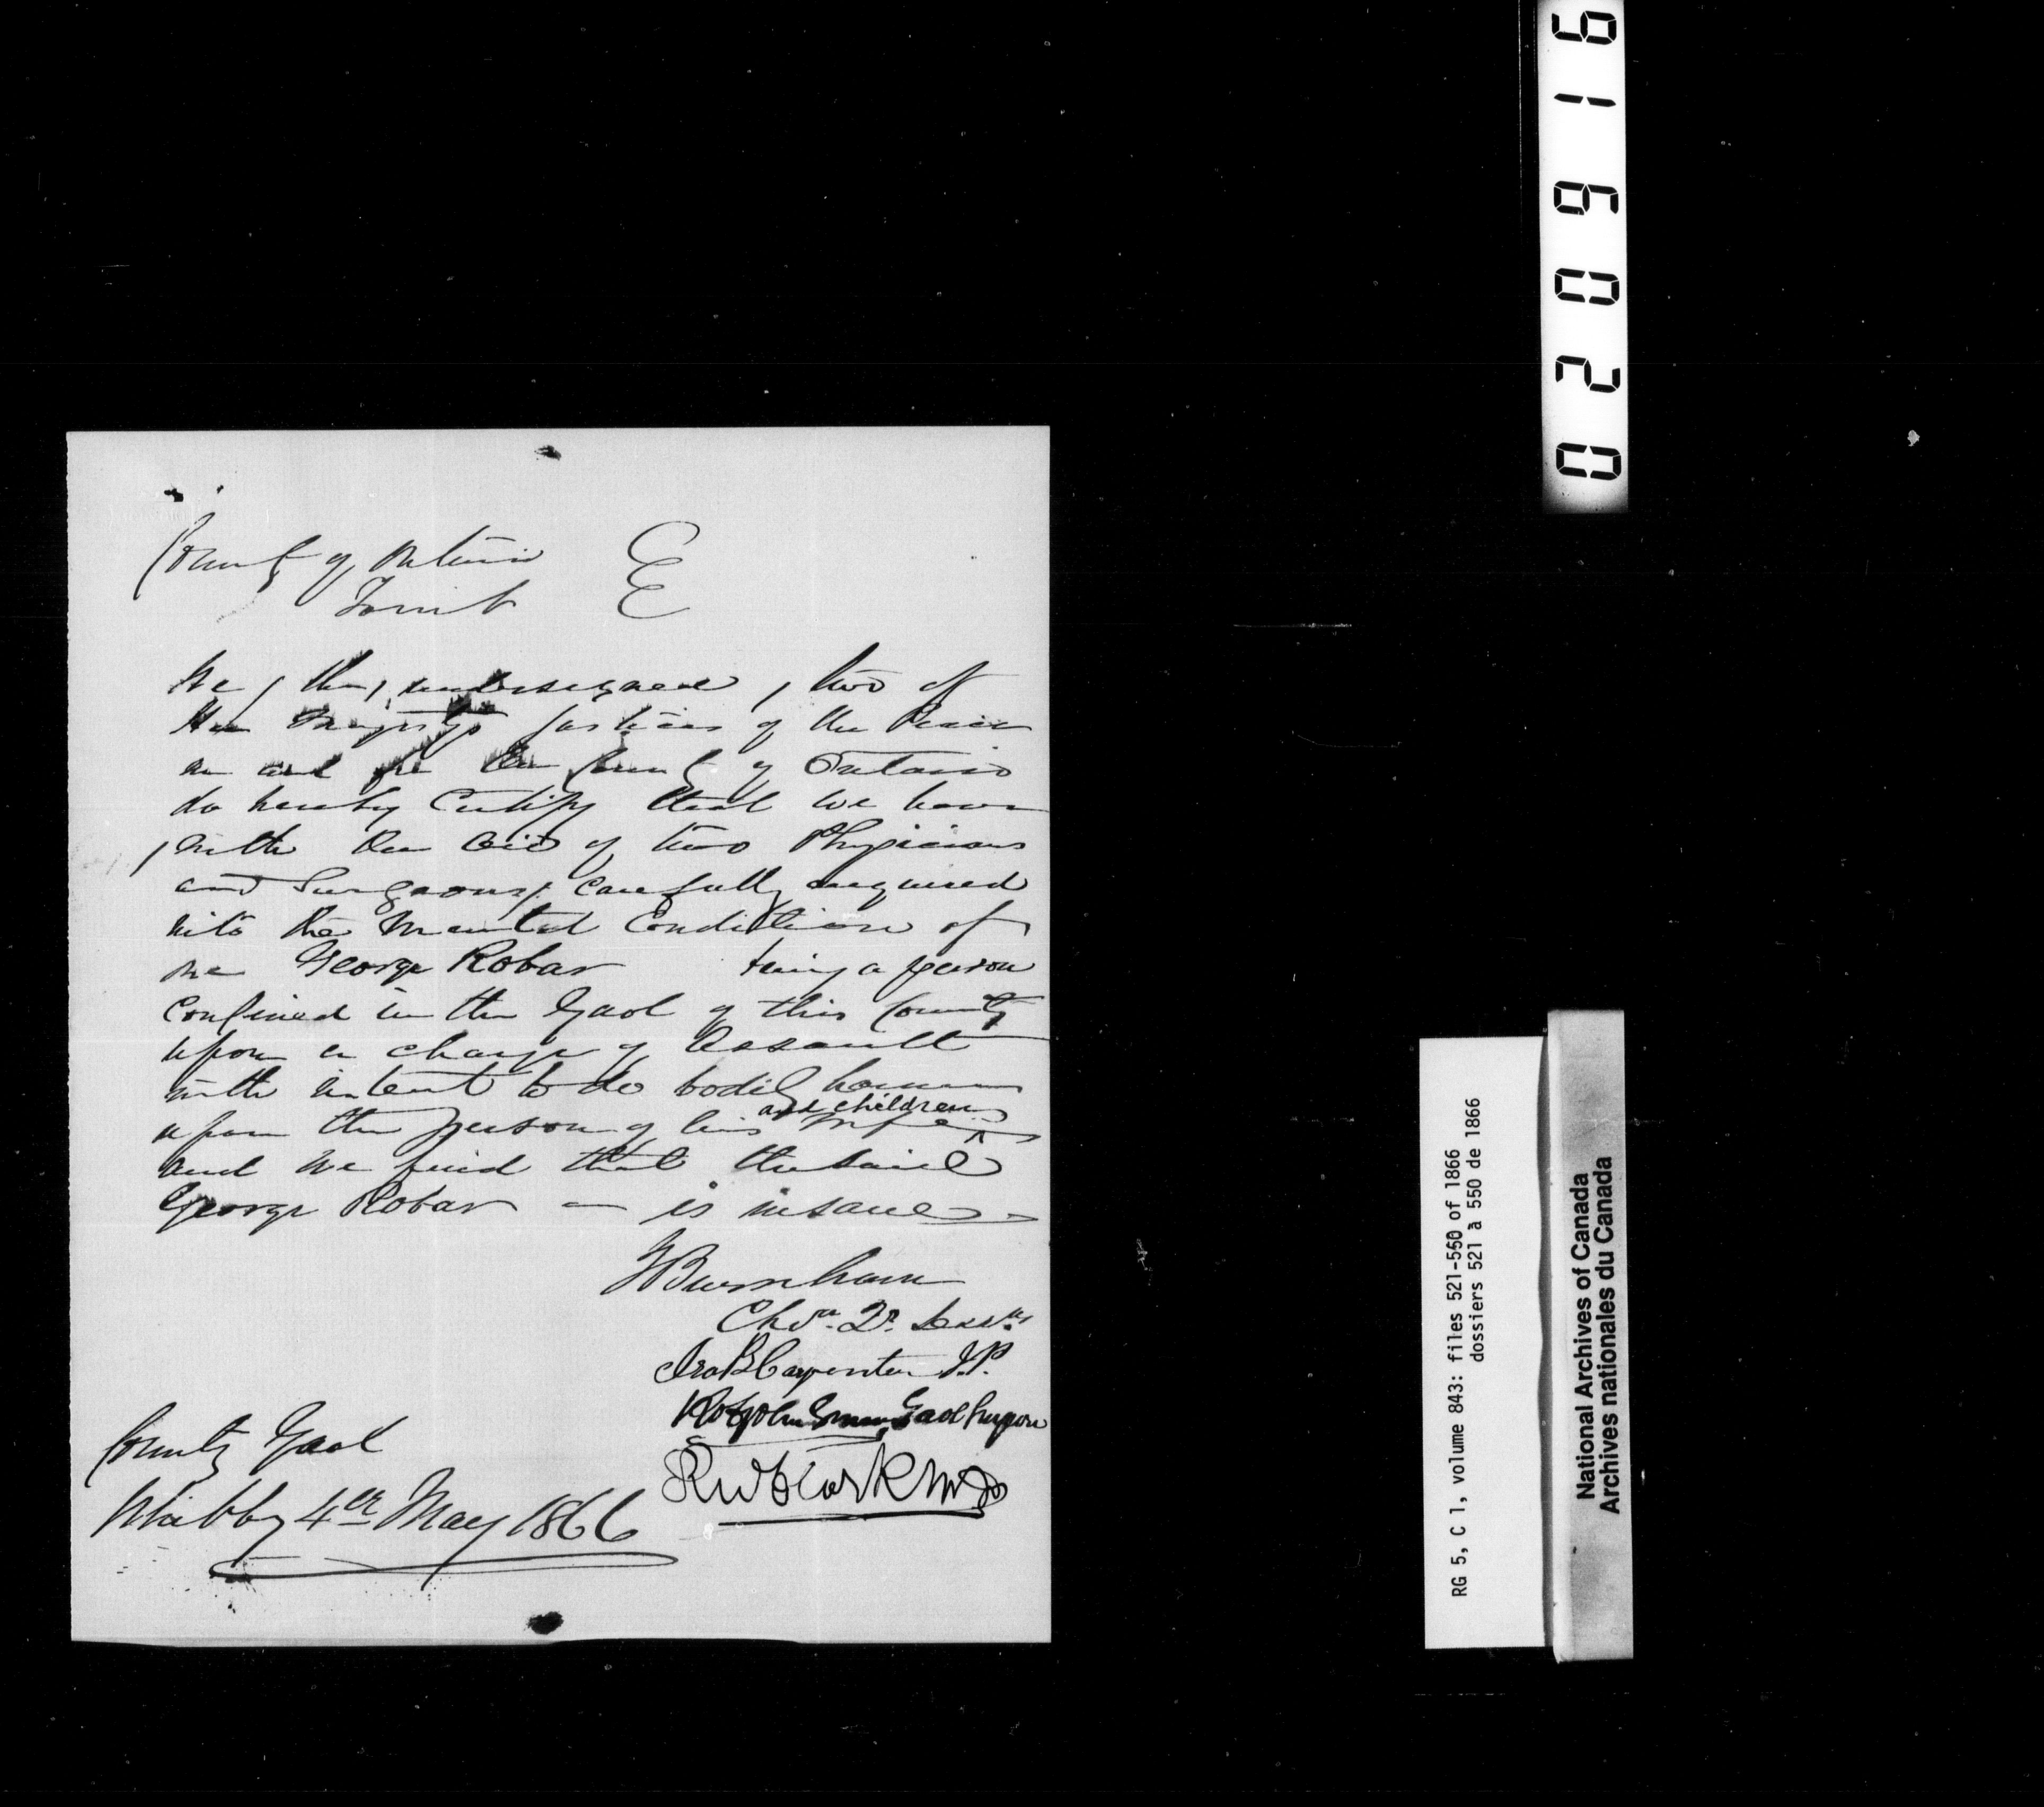 County of Ontario
To wit
We, the, undersigned, two of
Her Majesty's Justices of the Peace
in and for the County of Ontario
do hereby Certify that we have
, with the aid of two Physicians
and Surgeons, carefully enquired
into the Mental Condition of
one George Robar being a person
confined in the Gaol of this County
upon a charge of Assault
with intent to do bodily harm
upon the person of his Wife and children
and we find that the said
George Robar — is insane
Burnham
Chn. Qr. Sess.
Ira B Carpenter J.P.
Gaol Surgeon
R W Clark MD
County Gaol
Whitby 4th May 1866
020916
RG 5, C 1, volume 843: files 521-550 of 1866
dossiers 521 à 550 de 1866
National Archives of Canada
Archives nationales du Canada